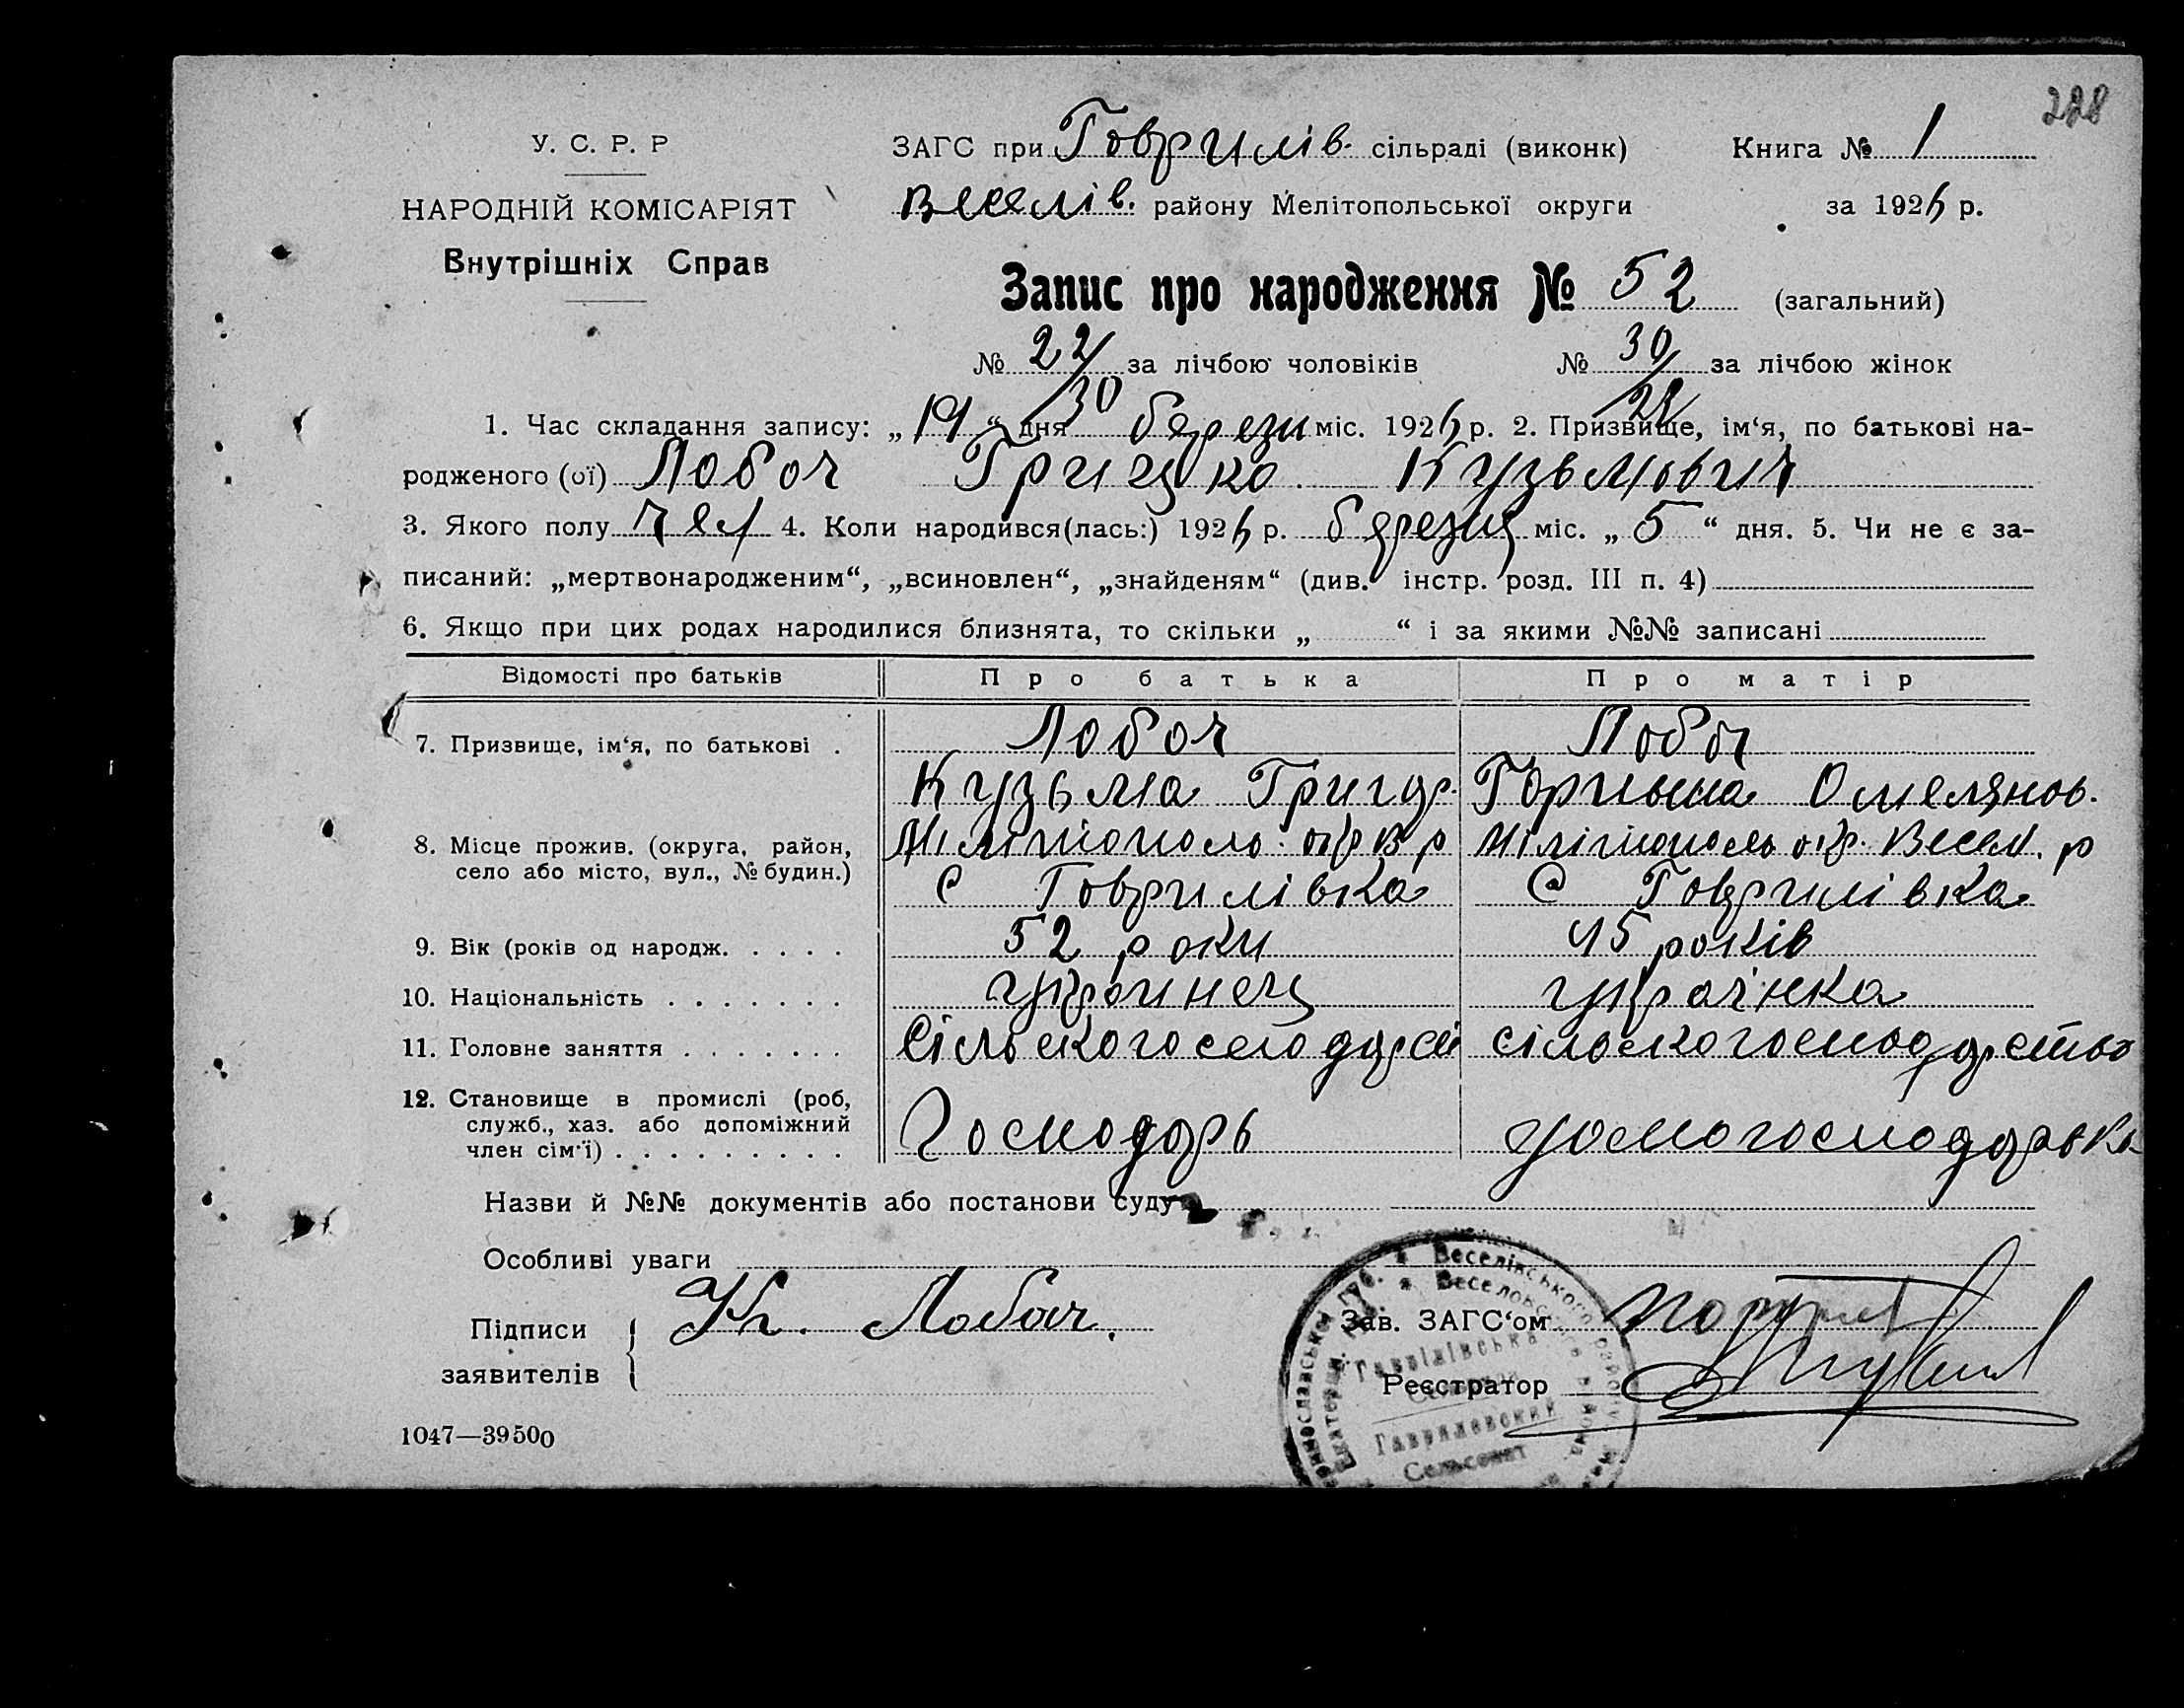 228
У. С. Р. Р
НАРОДНІЙ КОМІСАРІЯТ
Внутрішніх Справ
ЗАГС при Гаврилів. сільраді (виконк) Книга № 1
Веселів. району Мелітопольської округи за 1926 р.
Запис про народження № 52 (загальний)
№ 22/30 за лічбою чоловіків № 30/22 за лічбою жінок
1. Час складання запису: „19“ дня березня міс. 1926 р. 2. Призвище, ім‘я, по батькові на-
родженого (ої) Лобач Грицько Кузьмович
3. Якого полу чел 4. Коли народився(лась:) 1926 р. березня міс. „5“ дня. 5. Чи не є за-
писаний: „мертвонародженим“, „всиновлен“, „знайденям“ (див. інстр. розд. III п. 4)
6. Якщо при цих родах народилися близнята, то скільки „ “ і за якими №№ записані
Відомості про батьків Про батька Про матір
7. Призвище, ім‘я, по батькові . Лобач Лобач
Кузьма Григор. Омелянов.
8. Місце прожив. (округа, район, Мілітополь. окр В р Мілітополь окр. Весел. р
село або місто, вул., № будин.) С Гаврилівка С Гаврилівка
9. Вік (років од народж. . . . . 52 роки 45 років
10. Національність . . . . . . . українец українка
11. Головне заняття . . . . . . . сільськогосподарство
12. Становище в промислі (роб,
служб., хаз. або допоміжний Господарь домогосподарька
член сім‘ї) . . . . . . . . .
Назви й №№ документів або постанови суду
Особливі уваги
Підписи Кг. Лобач.
заявителів
Зав. ЗАГС‘ом
Реєстратор
Веселівського району
Гаврилівська
Гавриловский
Сельсовет
1047—39500